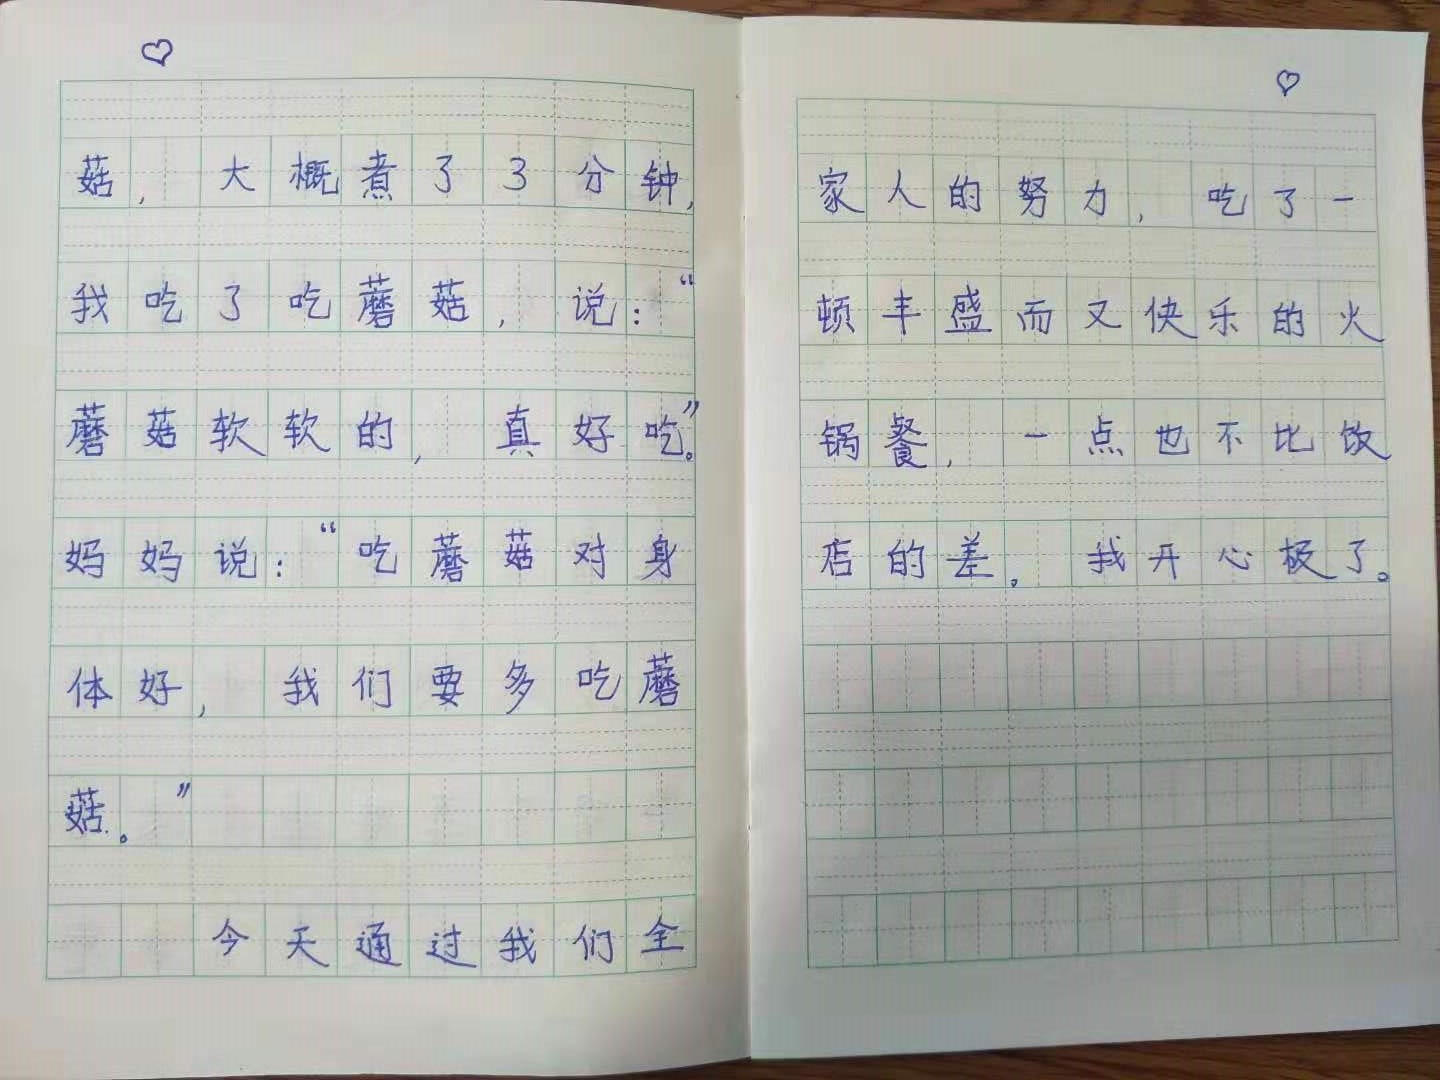 菇，大概煮了3分钟，
我吃了吃蘑菇，说：“
蘑菇软软的，真好吃。”
妈妈说：“吃蘑菇对身
体好，我们要多吃蘑
菇。”
今天通过我们全
家人的努力，吃了一
顿丰盛而又快乐的火
锅餐，一点也不比饭
店的差。我开心极了。